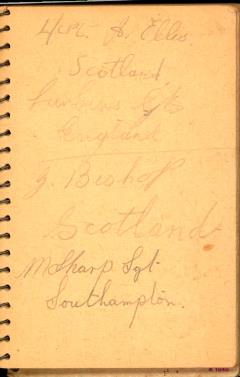 L/CPL. A. Ellis.
Scotland
England
J. Bishop
Scotland
M Sharp. Sgt.
Southampton.